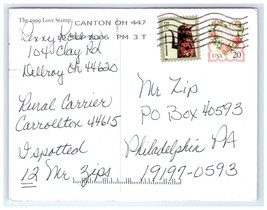 The 1999 Love Stamp
CANTON OH 447
2006 PM 3 T
Penny
104 Clay Rd
Dellroy OH 44620
1
USA 20
Mr Zip
PO Box 40593
Philadelphia PA
19197-0593
Rural Carrier
Carrollton 44615
I spotted
12 Mr. Zips